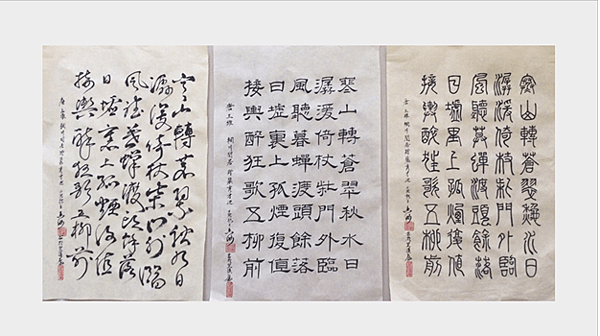 寒山轉蒼翠秋水日
潺湲倚杖柴門外臨
風聽暮蟬渡頭餘落
日墟里上孤煙復值
接輿醉狂歌五柳前
唐王維 輞川閒居贈裴秀才迪
寒山轉蒼翠秋水日
潺湲倚杖柴門外臨
風聽暮蟬渡頭餘落
日墟裏上孤煙復值
接輿醉狂歌五柳前
唐王維 輞川閒居贈裴秀才迪
寒山轉蒼翠秋水日
潺湲倚杖柴門外臨
風聽暮蟬渡頭餘落
日墟里上孤煙復值
接輿醉狂歌五柳前
唐王維輞川閒居贈裴秀才迪